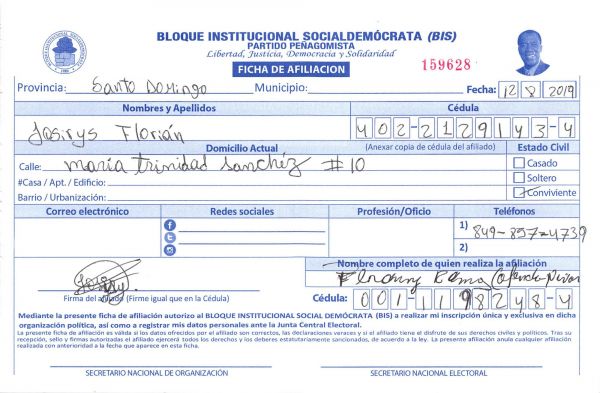 BLOQUE INSTITUCIONAL SOCIALDEMÓCRATA (BIS)
PARTIDO PEÑAGOMISTA
Libertad, Justicia, Democracia y Solidaridad
FICHA DE AFILIACION
159628
Provincia: Santo Domingo Municipio: Fecha: 12 8 2019
Nombres y Apellidos Cédula
Josirys Florián 402-2129143-4
Domicilio Actual (Anexar copia de cédula del afiliado) Estado Civil
Calle: maría trinidad sanchéz #10 Casado
#Casa / Apt. / Edificio: Soltero
Barrio / Urbanización: Conviviente
Correo electrónico Redes sociales Profesión/Oficio Teléfonos
1) 849-857-4739
2)
Nombre completo de quien realiza la afiliación
Firma del afiliado (Firme igual que en la Cédula) Cédula: 001-1198248-4
Mediante la presente ficha de afiliación autorizo al BLOQUE INSTITUCIONAL SOCIAL DEMÓCRATA (BIS) a realizar mi inscripción única y exclusiva en dicha
organización política, así como a registrar mis datos personales ante la Junta Central Electoral.
La presente ficha de afiliación es válida si los datos ofrecidos por el afiliado son correctos, las declaraciones veraces y si el afiliado tiene el disfrute de sus derechos civiles y políticos. Tras su
recepción, sello y firmas autorizadas el afiliado ejercerá todos los derechos y los deberes estatutariamente sancionados, de acuerdo a la ley. La presente afiliación anula cualquier afiliación
realizada con anterioridad a la fecha que aparece en esta ficha.
SECRETARIO NACIONAL DE ORGANIZACIÓN SECRETARIO NACIONAL ELECTORAL